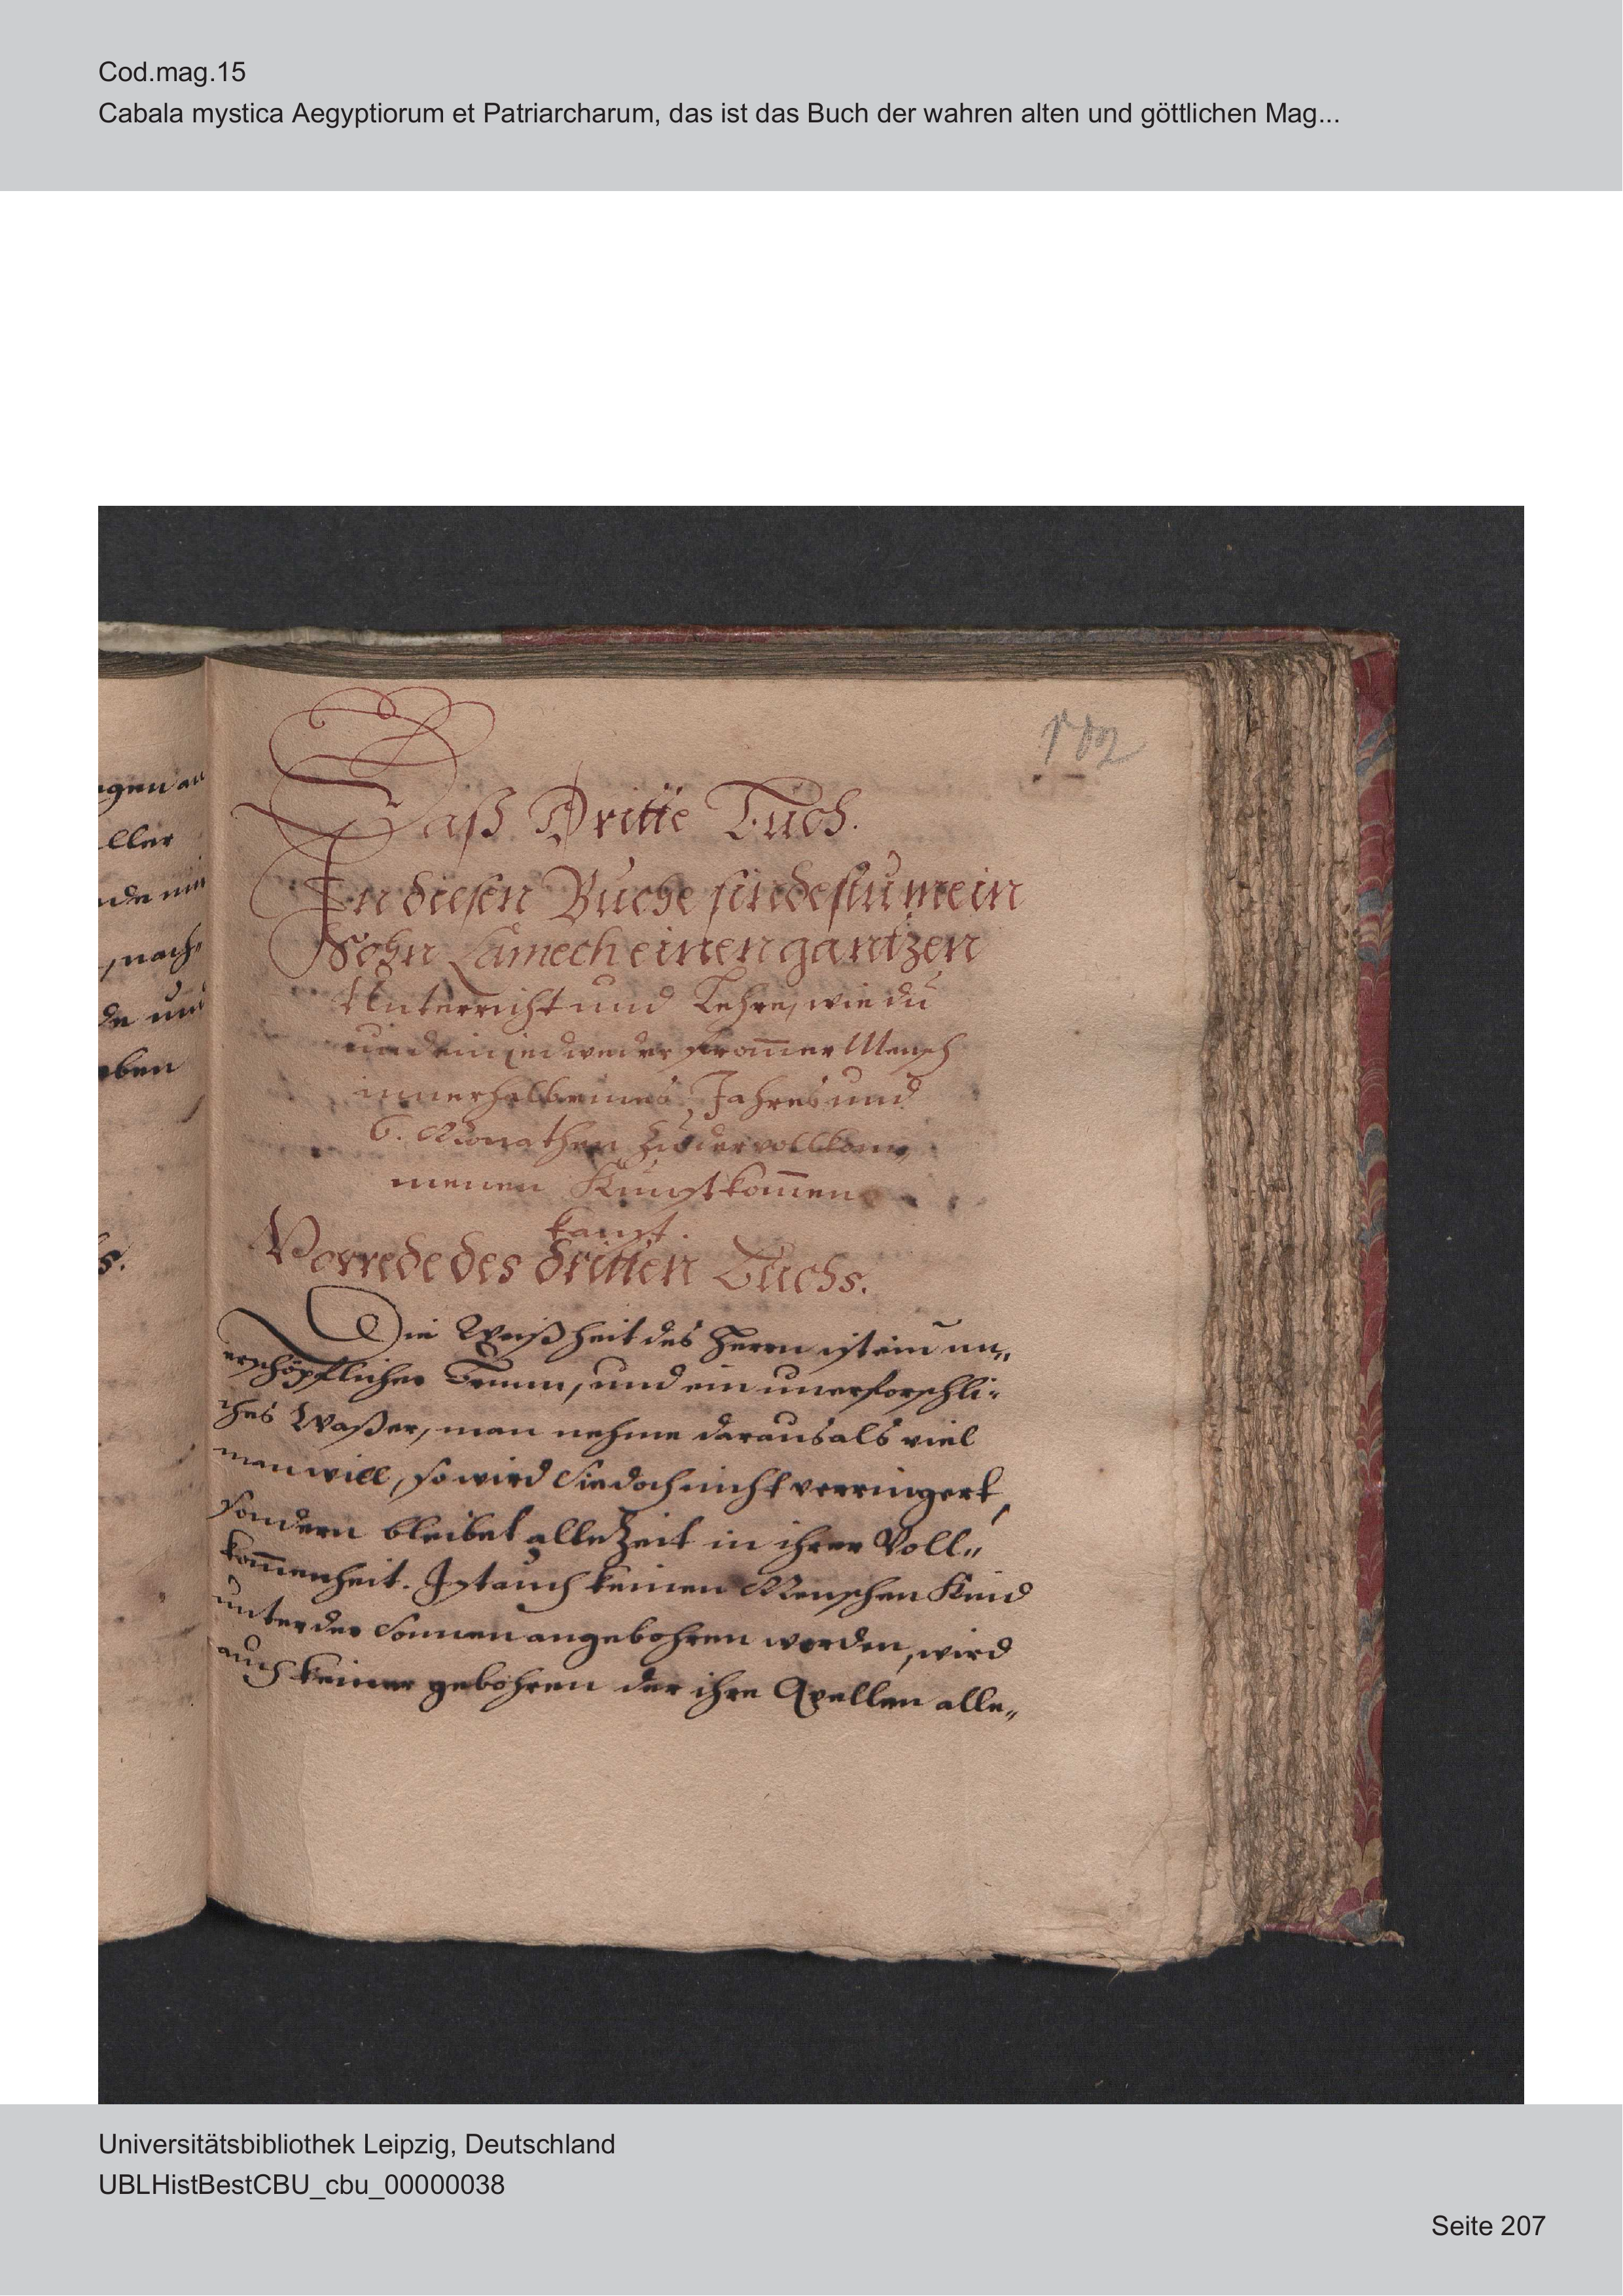 Cod.mag.15
Cabala mystica Aegyptiorum et Patriarcharum, das ist das Buch der wahren alten und göttlichen Mag...
gen an
ller
de
nach„
de und
ben
s.
102
Daß Dritte Buch.
In diesen Buche findestu mein
Sohn Lamech einen gantzen
Unterricht und Lehre, wie du
und ein jedweder from̄er Mensch
innerhalb eines Jahres und
6. Monathen zu der vollkom„
menen Kunst kom̄en
kanst.
Vorrede des dritten Buchs.
Die Weißheit des Herrn ist ein un„
erschöpflicher Brunn, und ein unerforschli-
ches Waßer, man nehme daraus als viel
man will, so wird Sie doch nicht verringert,
sondern bleibet alle Zeit in ihrer Voll„
kom̄enheit. Ist auch keinen Menschen Kind
unter der Sonnen angebohren worden, wird
auch keiner gebohren der ihre Qvellen alle„
Universitätsbibliothek Leipzig, Deutschland
UBLHistBestCBU_cbu_00000038
Seite 207